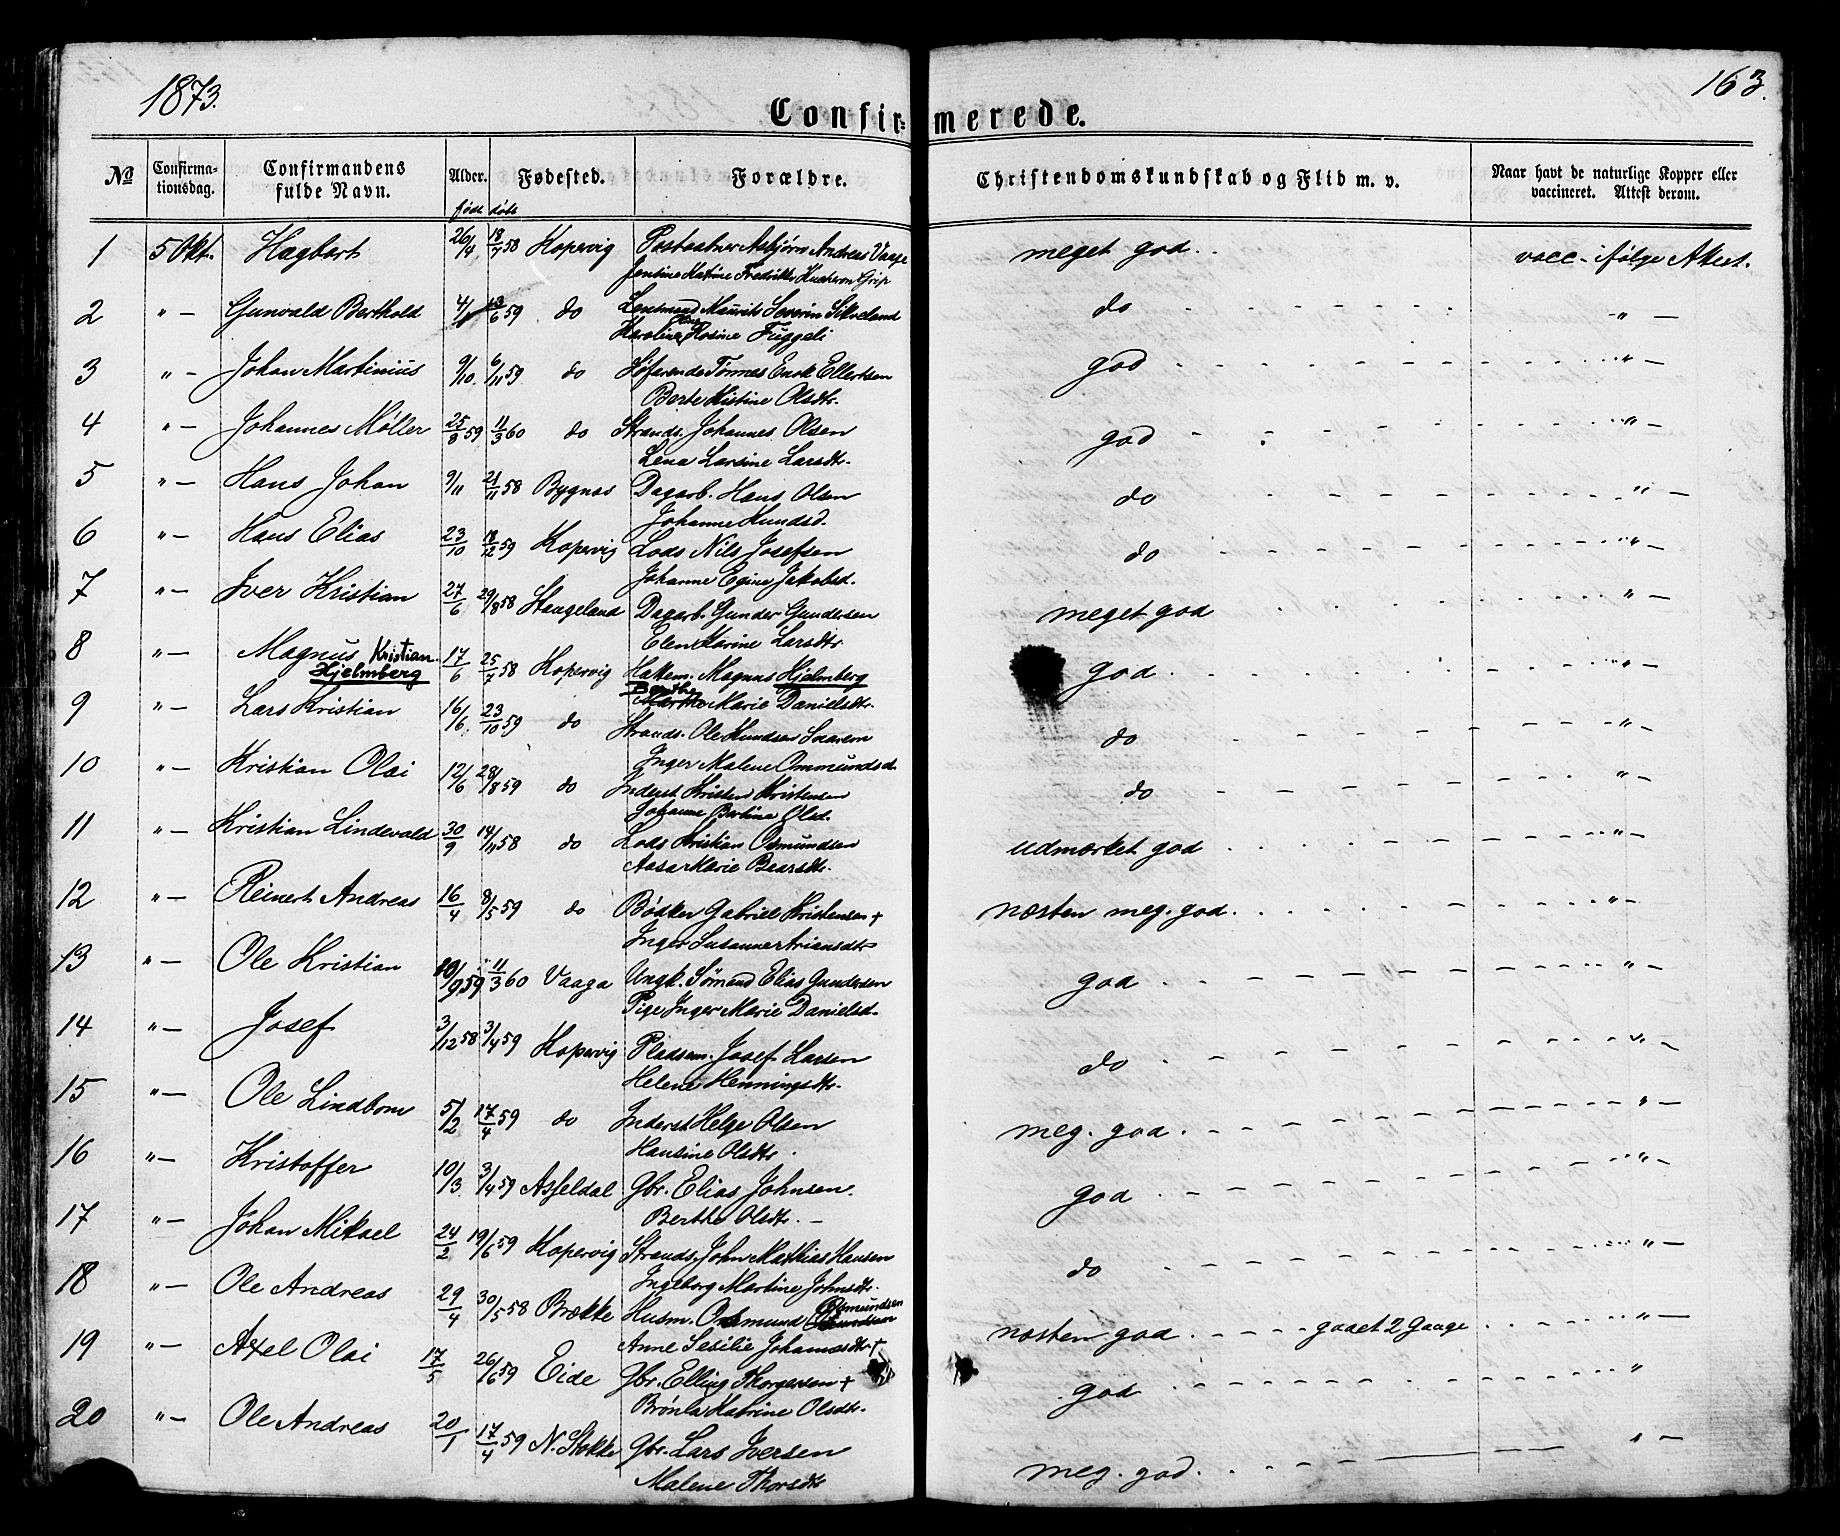 1873.
163.
Confir- merede.
No Confirma-tionsdag. Confirmandens fulde Navn. Alder. Fødested. Forældre. Christendomskundskab og Flid m. v. Naar havt de naturlige Kopper eller vaccineret. Attest derom.
født døbt
1 5 Okt. Hagbart 26/4 18/7 58 Kopervig Postaabner Asbjørn Andreas Vaage meget god. vacc. ifølge Attest.
Jentine Katrine Fredrikke Grip
2 " — Gunvald Berthold 4/ 13/6 59 do Lensmand Maurits Severin do " —
Karoline Rosine Fuggeli
3 " — Johan Martinius 9/10 6/11 59 do Søfarende Tønnes Enok Ellertsen god "
Berte Kistine Olsdtr.
4 " — Johannes Møller 25/8 59 11/3 60 do Strands. Johannes Olsen god " —
Lena Larsine Larsdtr.
5 " — Hans Johan 9/11 21/11 58 Bygnes Dagarb. Hans Olsen do " —
Johanne Knudsd.
6 " — Hans Elias 23/10 18/12 59 Kopervig Lods Nils Josefsen do " —
Johanne Egine Jakobsd.
7 " — Iver Kristian 27/6 29/8 58 Stangeland Dagarb. Gunder Gundersen meget god " —
Elen Karine Larsdtr
8 " — Magnus Kristian 17/6 25/7 58 Kopervig Hattem. Magnus Hjelmberg god " —
Hjelmberg Berthe Marie Danielsdtr.
9 " — Lars Kristian 16/6 23/10 59 do Strands. Ole Knudsen do " —
Inger Malene Ommundsd.
10 " — Kristian Olai 12/6 28/8 59 do Inderst Kristen Kristensen do " —
Johanne Bertine Olsd.
11 " — Kristian Lindevald 30/9 14/11 58 do Lods Kristian Osmundsen udmærket god " —
Aasa Marie
12 " — Reinert Andreas 16/4 8/5 59 do Bødker Gabriel Kristensen + næsten meg. god. " —
Inger Susanne
13 " — Ole Kristian 10/9 59 11/3 60 Vaaga Ungk. Sømand Elias Gundersen god " —
Pige Inger Marie Danielsd.
14 " — Josef 3/12 58 3/4 59 Kopervig Pladsm. Josef Larsen do " —
Helene Henningsdtr.
15 " — Ole Lindbom 5/2 17/4 59 do Inderst Helge Olsen meg. god. " —
Hansine Olsdtr.
16 " — Kristoffer 10/3 3/4 59 Asfeldal Gbr. Elias Johnsen. god " —
Berthe Olsdtr. —
17 " — Johan Mikael 24/2 19/6 59 Kopervig Strands. John Mathias Hansen do " —
Ingeborg Martine Johnsdtr.
18 " — Ole Andreas 29/4 30/5 58 Brække Husm. Osmund Osmundsen næsten god gaaet 2 Gange " —
Anne Sesilie Johannesdtr +
19 " — Axel Olai 17/5 26/6 59 Eide Gbr. Elling Thorgersen + god "
Brønla Katrine Olsdtr.
20 " — Ole Andreas 20/1 17/4 59 N. Stokke Gbr. Lars Iversen meg. god. " —
Malene Thorsdtr